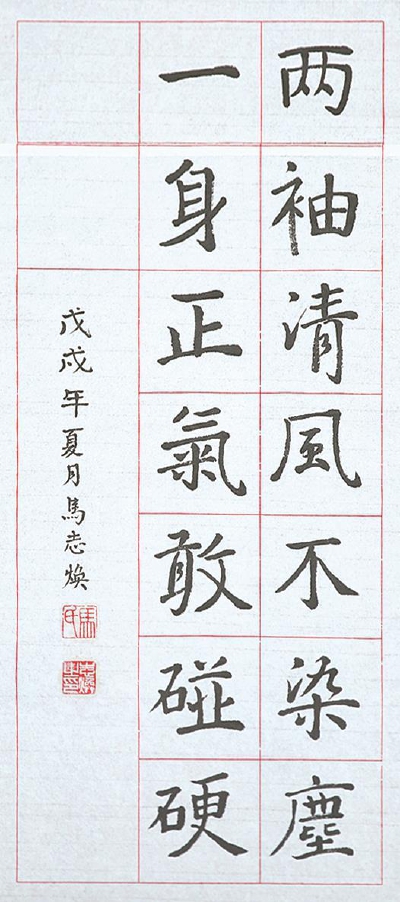 两袖清風不染塵
一身正氣敢碰硬
戊戌年夏月馬志煥